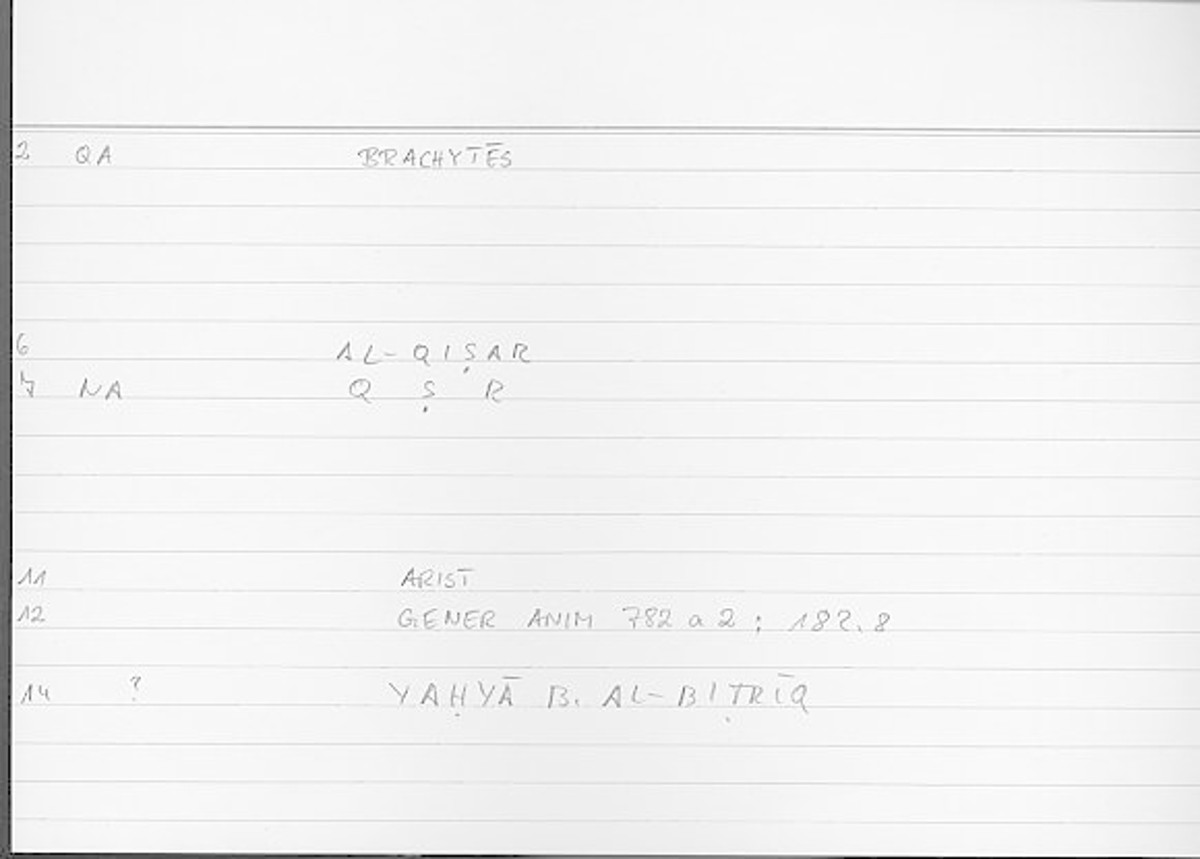 2 QA BRACHYTĒS
6 AL-QIṢAR
7 NA Q Ṣ R
11 ARIST
12 GENER ANIM 782 a 2 ; 182.8
14 ? YAḤYĀ B. AL-BIṬRĪQ